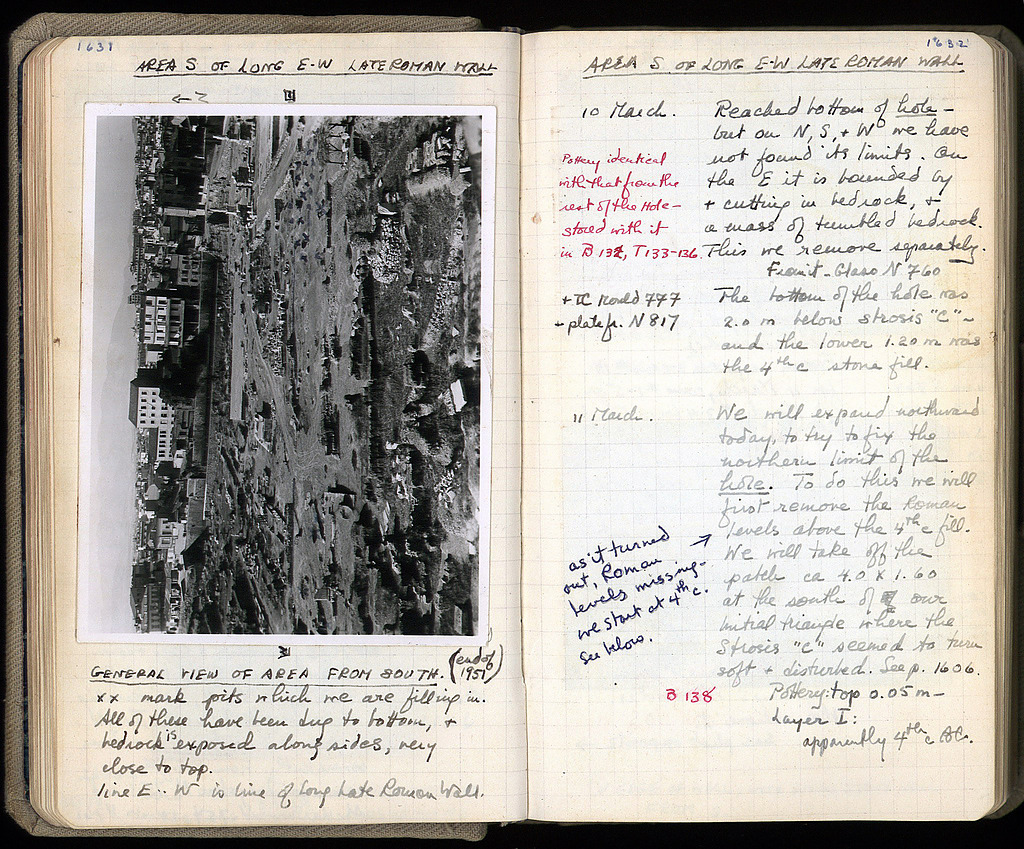 1631
AREA S OF LONG E-W LATE ROMAN WALL
E
W
GENERAL VIEW OF AREA FROM SOUTH. (end of 1951)
xx mark pits which we are filling in.
All of these have been dug to bottom, +
bedrock is exposed along sides, very
close to top.
line E--W is line of Long Late Roman Wall.
1632
AREA S OF LONG E-W LATE ROMAN WALL
10 March. Reached bottom of hole -
but on N, S, + W we have
not found its limits. On
the E it is bounded by
+ cutting in bedrock, +
a mass of tumbled bedrock.
This we remove separately.
From it - Glass N 760
Pottery identical
with that from the
rest of the Hole -
stored with it
in B 137, T 133-136
+ TC Mould 777
- plate fr. N 817
The bottom of the hole was
2.0 m below strosis "C" -
and the lower 1.20 m was
the 4th c stone fill.
11 March. We will expand northward
today, to try to fix the
northern limit of the
hole. To do this we will
first remove the Roman
levels above the 4th c fill.
We will take off the
patch ca 4.0 x 1.60
at the south of our
initial triangle where the
Strosis "C" seemed to turn
soft + disturbed. See p. 1606.
as it turned
out, Roman
levels missing -
we start at 4th c.
See below.
B 138
Pottery: top 0.05 m -
Layer I:
apparently 4th c BC.